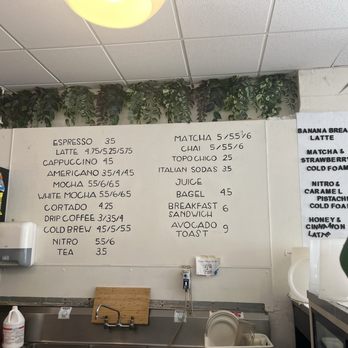 ESPRESSO 3.5
LATTE 4.75/5.25/5.75
CAPPUCCINO 4.5
AMERICANO 3.5/4/4.5
MOCHA 5.5/6/6.5
WHITE MOCHA 5.5/6/6.5
CORTADO 4.25
DRIP COFFEE 3/3.5/4
COLD BREW 4.5/5/5.5
NITRO 5.5/6
TEA 3.5
MATCHA 5/5.5/6
CHAI 5/5.5/6
TOPO CHICO 2.5
ITALIAN SODAS 3.5
JUICE
BAGEL 4.5
BREAKFAST SANDWICH 6
AVOCADO TOAST 9
BANANA BREA
LATTE
MATCHA &
STRAWBERRY
COLD FOAM
NITRO &
CARAMEL
PISTACHI
COLD FOA
HONEY &
CINNAMON
LATTE